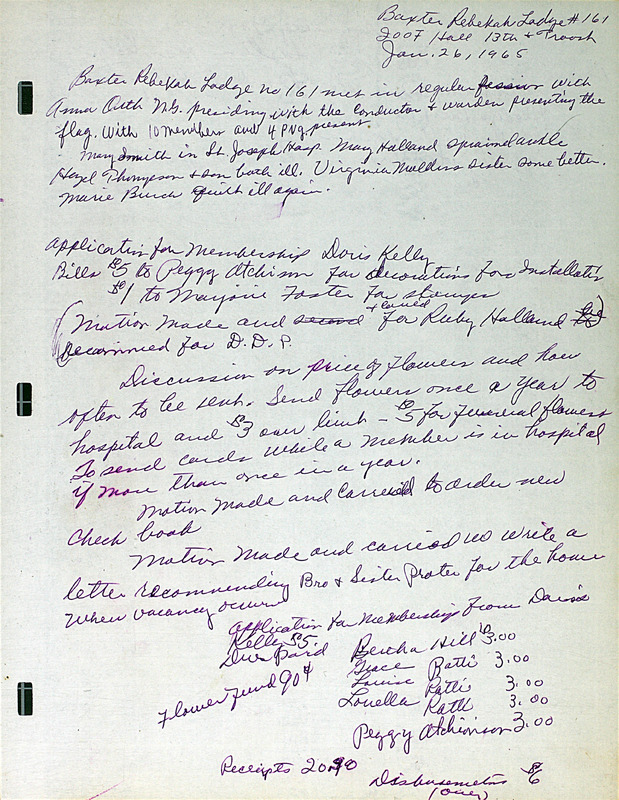 Baxter Rebekah Lodge # 161
IOOF Hall 13th + Troost
Jan. 26, 1965
Baxter Rebekah Lodge no 161 met in regular session with
Anna Orth N.G. presiding with the Conductor + warden presenting the
flag. With 10 members and 4 PNG present
Mary Smith in St. Joseph Hosp. Mary Holland sprained ankle
Hazel Thompson + son both ill. Virginia Mulders sister some better.
Marie Burch quit ill again.
Application for Membership Doris Kelly
Bills $5 to Peggy Atchison for decorations for Installation
$1 to Marjorie Foster for
(Motion Made and second + carried for Ruby Holland
Recommed for D.D.P.
Discussion on price of flowers and how
often to be sent. Send flowers once a year to
hospital and $3 over limit - $5 for Funeral flowers
To send cards while a member is in hospital
if more than once in a year.
Motion Made and Carried to order new
Check book
Motion Made and carried to write a
letter recommending Bro + Sister Prater for the home
when vacancy occurs
Application for Membership From Doris
Kelly $5
Dues Paid Bertha Hill $3.00
Grace Ratti 3.00
Louise Ratti 3.00
Louella Ratti 3.00
Peggy Atchinson 3.00
Flower Fund 90¢
Receipts 20.90
Disbursemetns $6
(over)